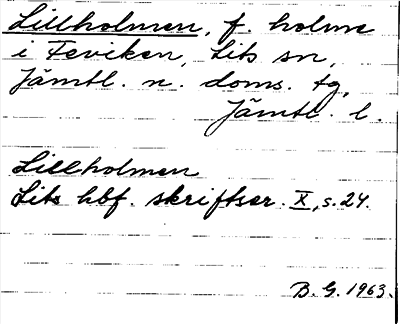 Lillholmen, f. holme
i Feviken, Lits sn,
Jämtl. n. doms. tg,
Jämtl. l.
Lillholmen
Lits hbf. skriftser. X, s. 24.
B. G. 1963.